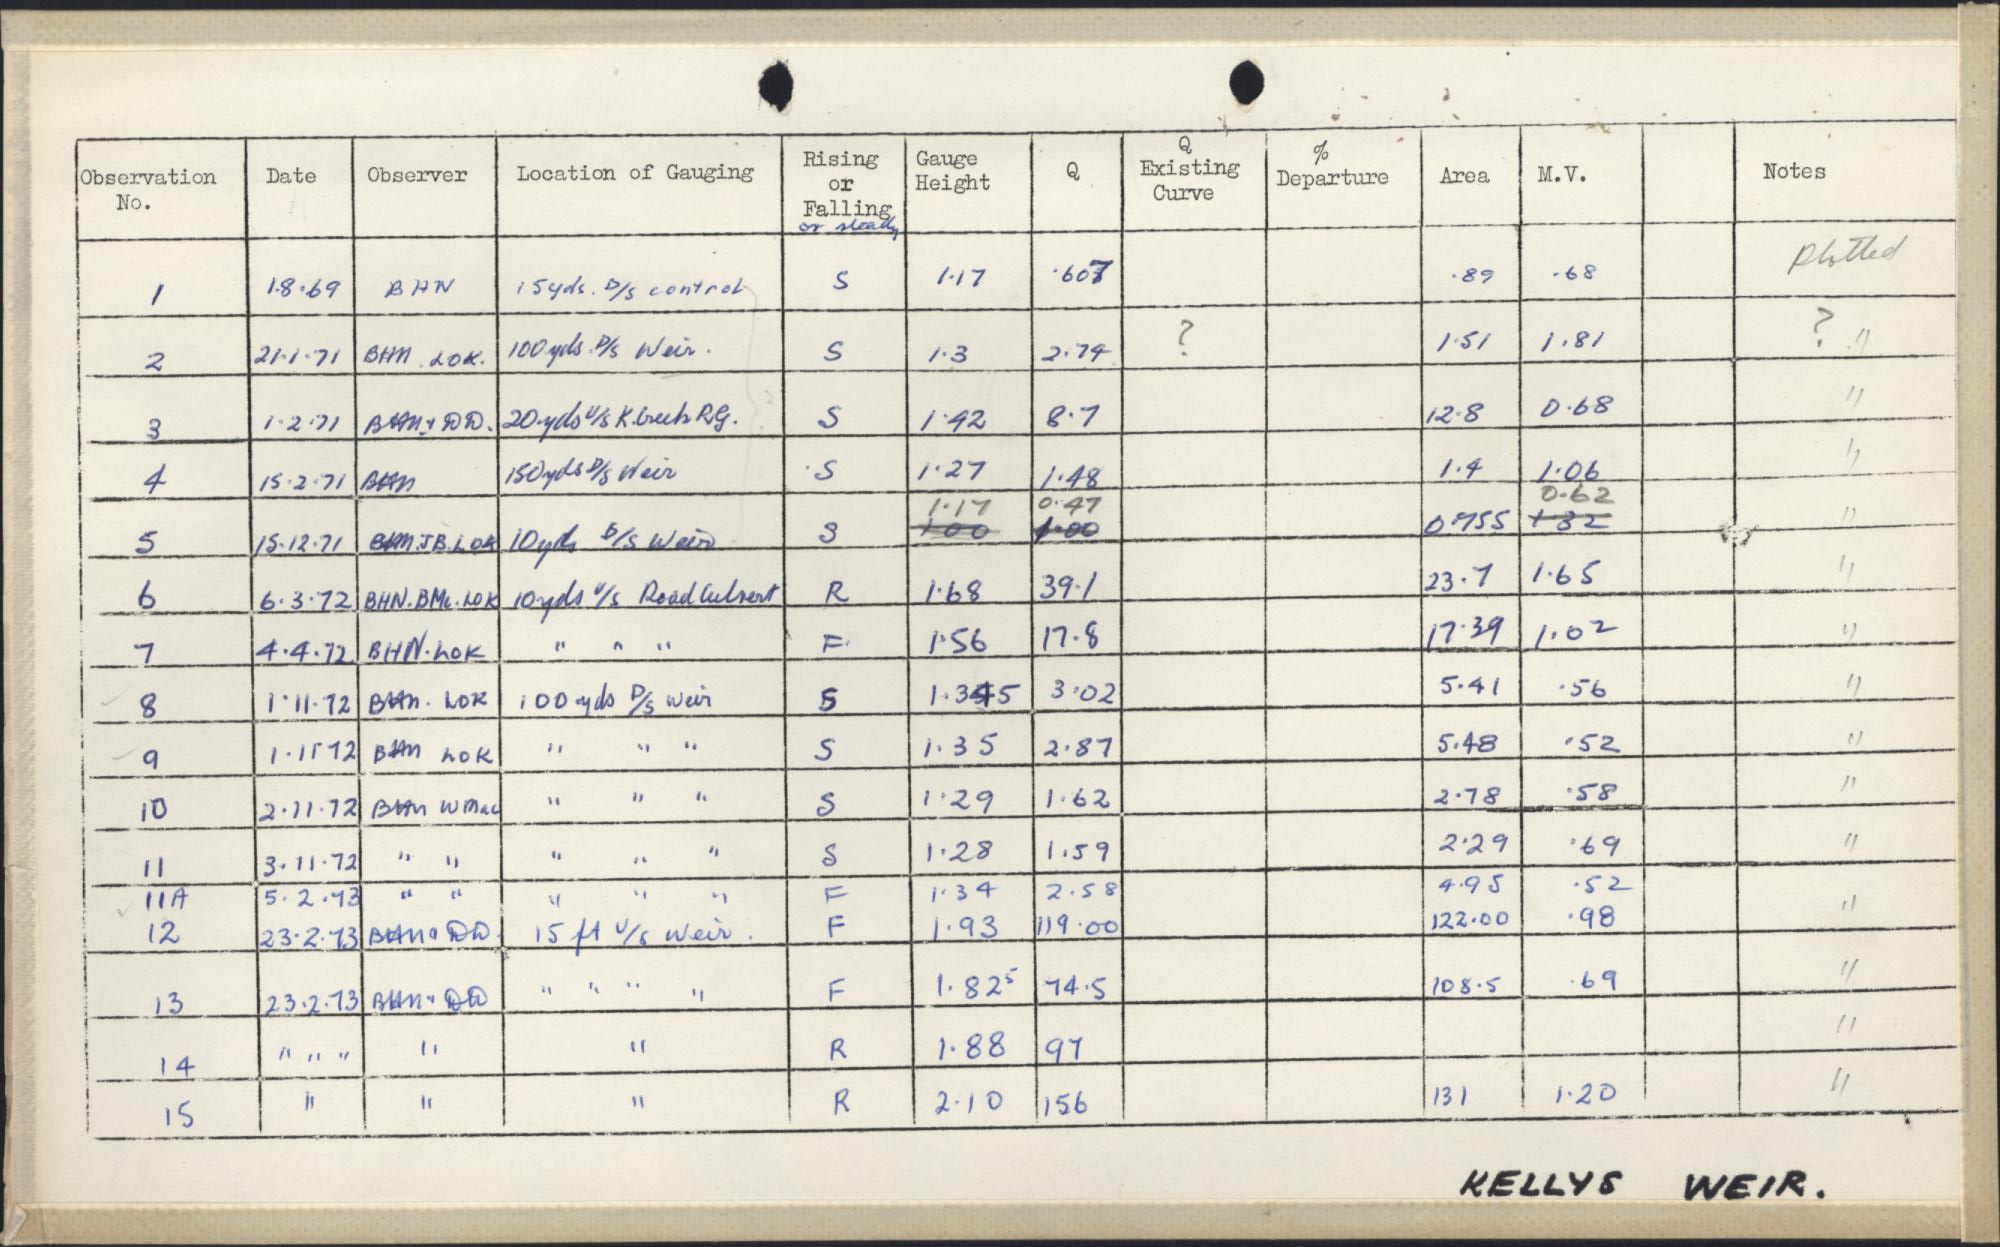 Observation No. Date Observer Location of Gauging Rising or Falling or steady Gauge Height Q Q Existing Curve % Departure Area M.V. Notes
1 1.8.69 BHN 15yds. D/s control S 1.17 .607 .89 .68 Plotted
2 21.1.71 BHN. LOK. 100yds. D/s Weir. S 1.3 2.74 ? 1.51 1.81 ? "
3 1.2.71 BHN & DD. 20yds U/s K. Creek R.G. S 1.42 8.7 12.8 0.68 "
4 15.2.71 BHN 150yds D/s Weir S 1.27 1.48 1.4 1.06 "
5 15.12.71 BHN.JB.LOK 10yds D/s Weir S 1.17 1.00 0.47 1.00 0.755 0.62 1.32 "
6 6.3.72 BHN.BMc.LOK 10yds U/s Road Culvert R 1.68 39.1 23.7 1.65 "
7 4.4.72 BHN.LOK " " " F 1.56 17.8 17.39 1.02 "
8 1.11.72 BHN. LOK 100yds D/s weir S 1.345 3.02 5.41 .56 "
9 1.11.72 BHN LOK " " " S 1.35 2.87 5.48 .52 "
10 2.11.72 BHN WMac " " " S 1.29 1.62 2.78 .58 "
11 3.11.72 " " " " " S 1.28 1.59 2.29 .69 "
11A 5.2.73 " " " " " F 1.34 2.58 4.95 .52
12 23.2.73 BHN & DD. 15 ft U/s Weir. F 1.93 119.00 122.00 .98 "
13 23.2.73 BHN & DD " " " " F 1.825 74.5 108.5 .69 "
14 " " " " " R 1.88 97 "
15 " " " R 2.10 156 131 1.20 "
KELLYS WEIR.